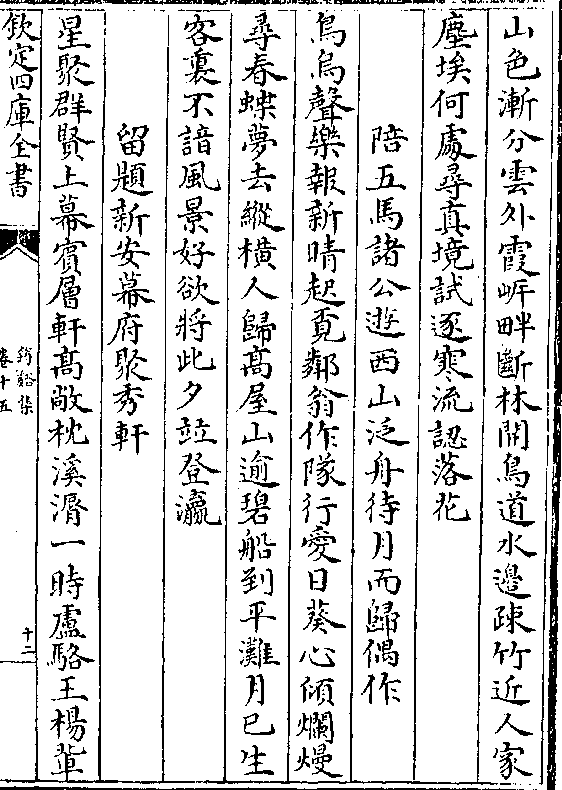 山色漸分雲外霞岸畔斷林開鳥道水邊疎竹近人家
塵埃何處尋真境試逐寒流認落花
陪五馬諸公遊西山泛舟待月而歸偶作
鳥烏聲樂報新晴起覔鄰翁作隊行愛日葵心傾爛熳
尋春蝶夢去縱橫人歸髙屋山逾碧船到平灘月已生
容裏不諳風景好欲將此夕竝登瀛
留題新安幕府聚秀軒
星聚群賢上幕賓層軒髙敞枕溪漘一時盧駱王楊軰
欽定四庫全書
卷十五
十二